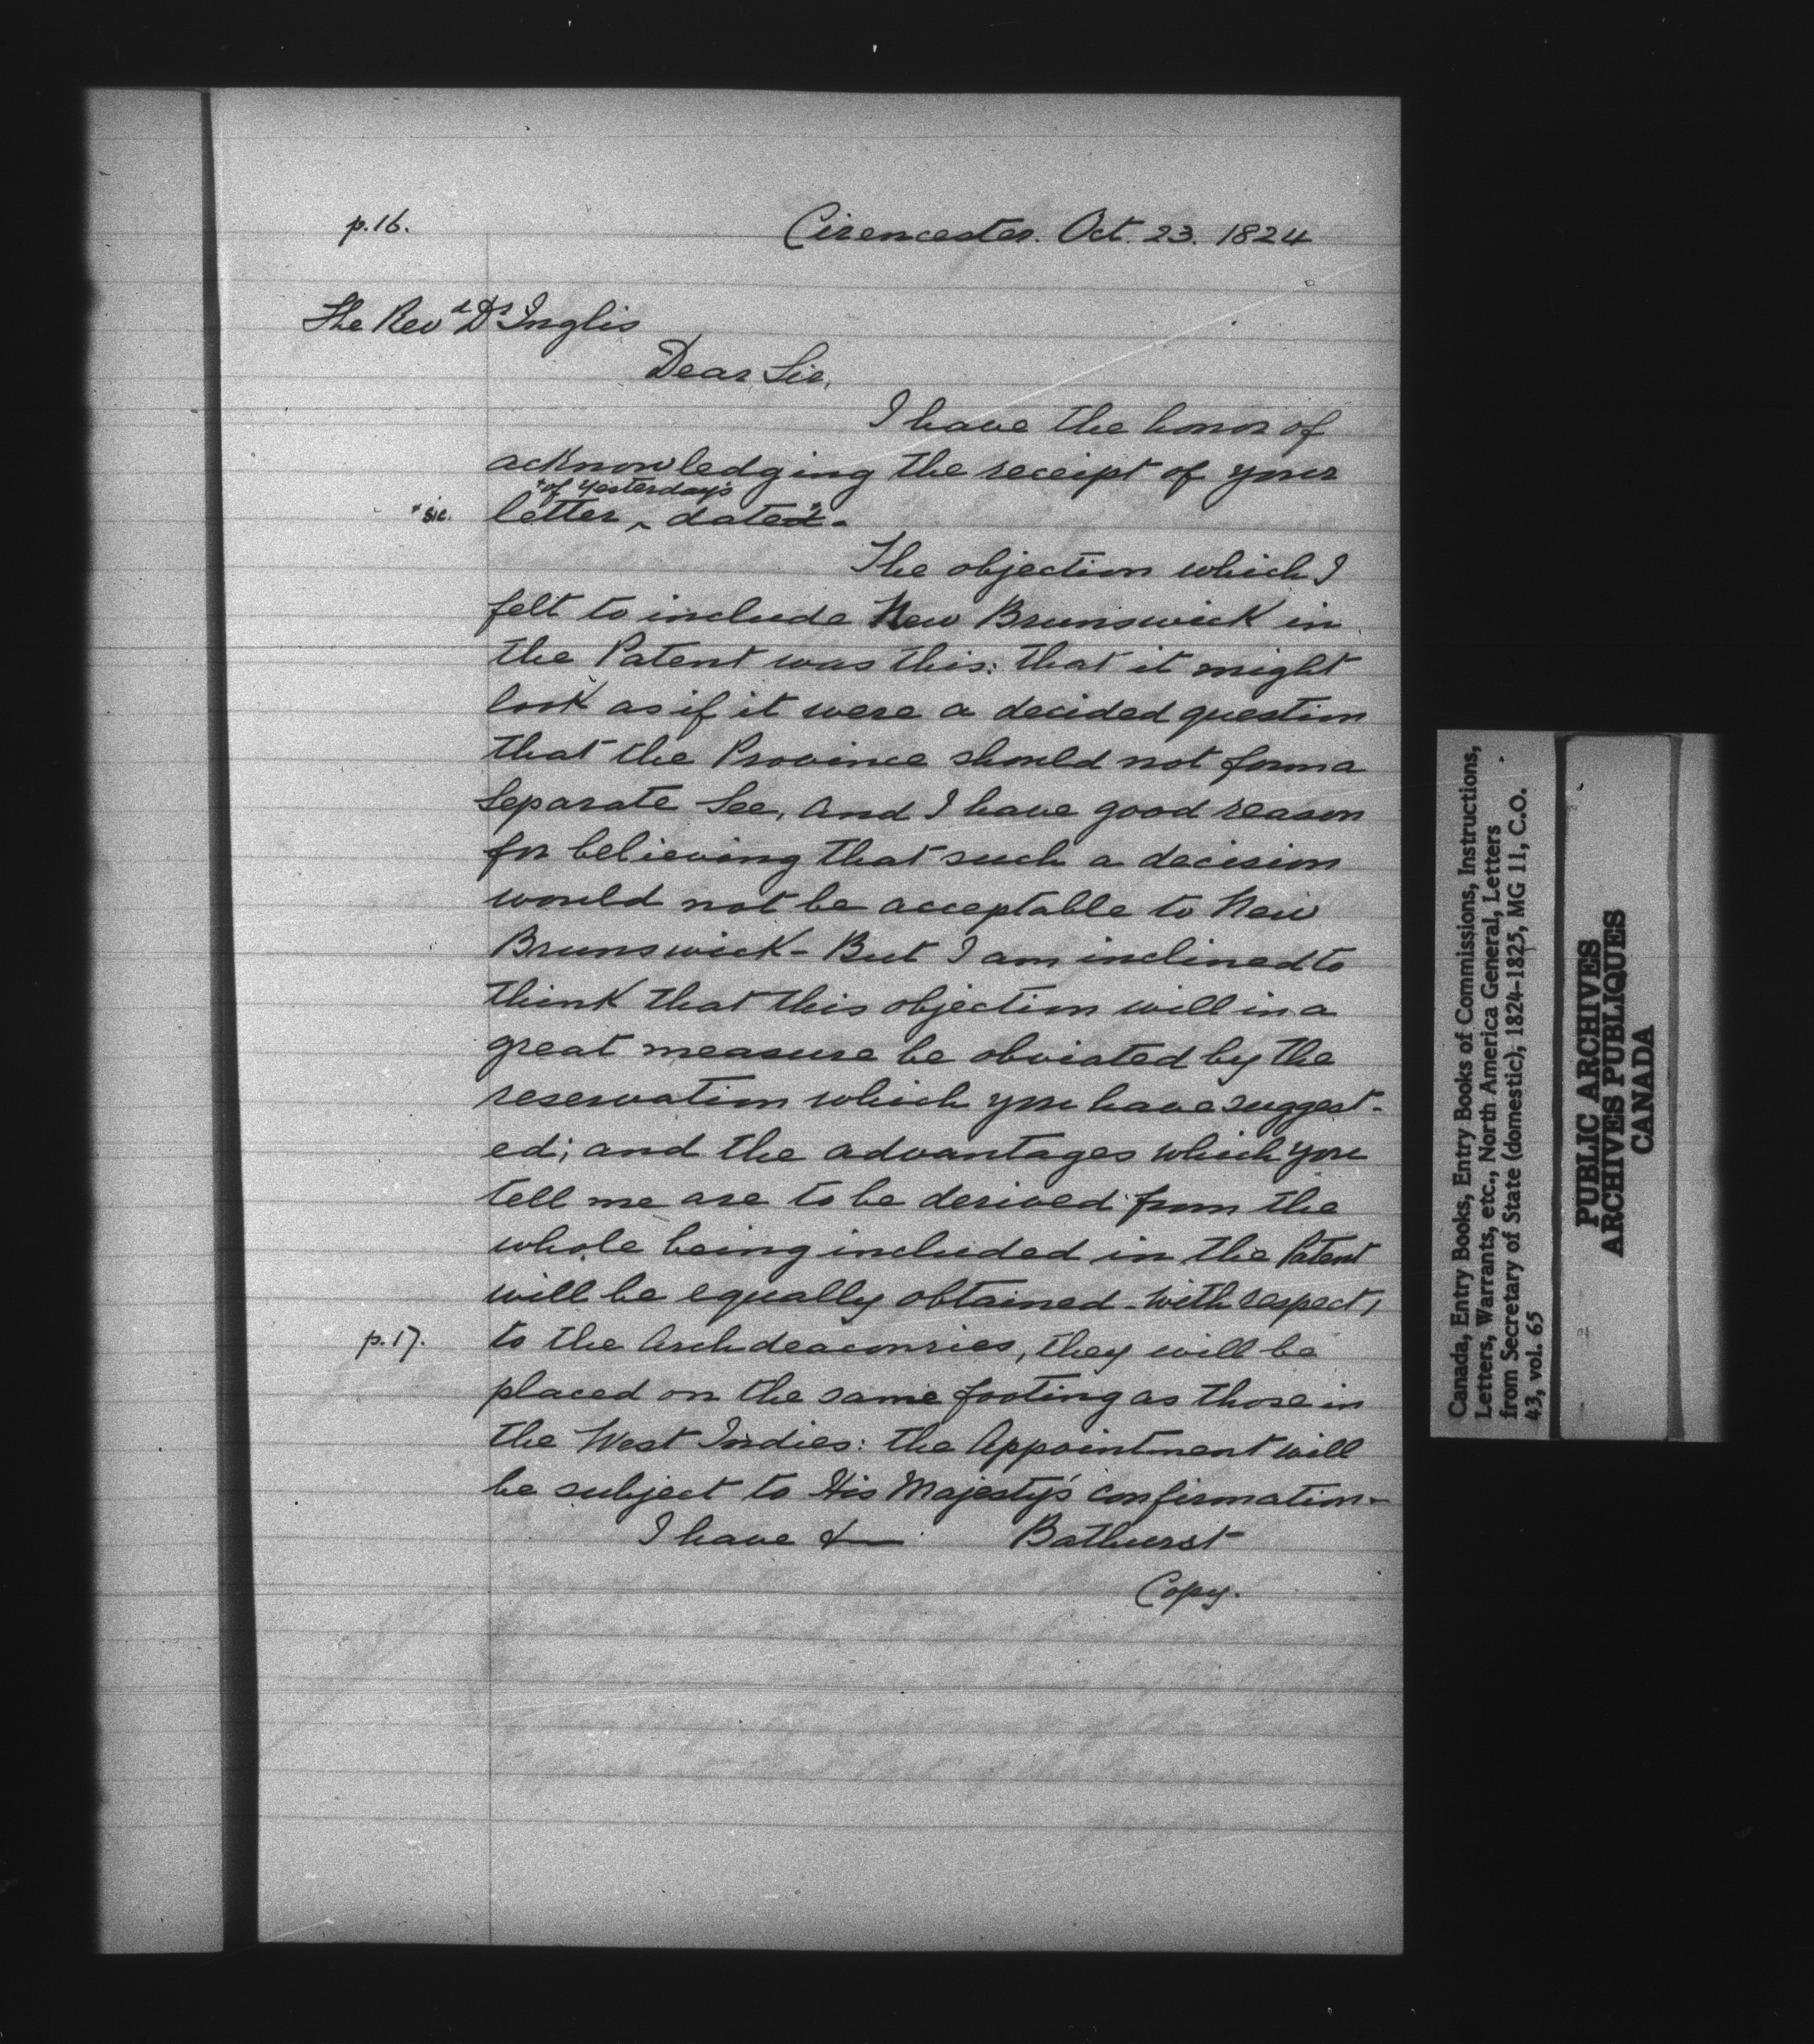 p.16.
Cirencester. Oct. 23. 1824
The Revd Dr Inglis
Dear Sir,
I have the honor of
acknowledging the receipt of your
*of yesterday's
*sic. letter ‸ dated.
The objection which I
felt to include New Brunswick in
the Patent was this: that it might
look as if it were a decided question
that the Province should not form a
Separate See, and I have good reason
for believing that such a decision
would not be acceptable to New
Brunswick - But I am inclined to
think that this objection will in a
great measure be obviated by the
reservation which you have suggest-
ed; and the advantages which you
tell me are to be derived from the
whole being included in the Patent
will be equally obtained - With respect,
p.17. to the Archdeaconries, they will be
placed on the same footing as those in
the West Indies: the Appointment will
be subject to His Majesty's confirmation -
I have & Bathurst
Copy.
Canada, Entry Books, Entry Books of Commissions, Instructions,
Letters, Warrants, etc., North America General, Letters
from Secretary of State (domestic), 1824-1825, MG 11, C.O.
43, vol. 65
PUBLIC ARCHIVES
ARCHIVES PUBLIQUES
CANADA